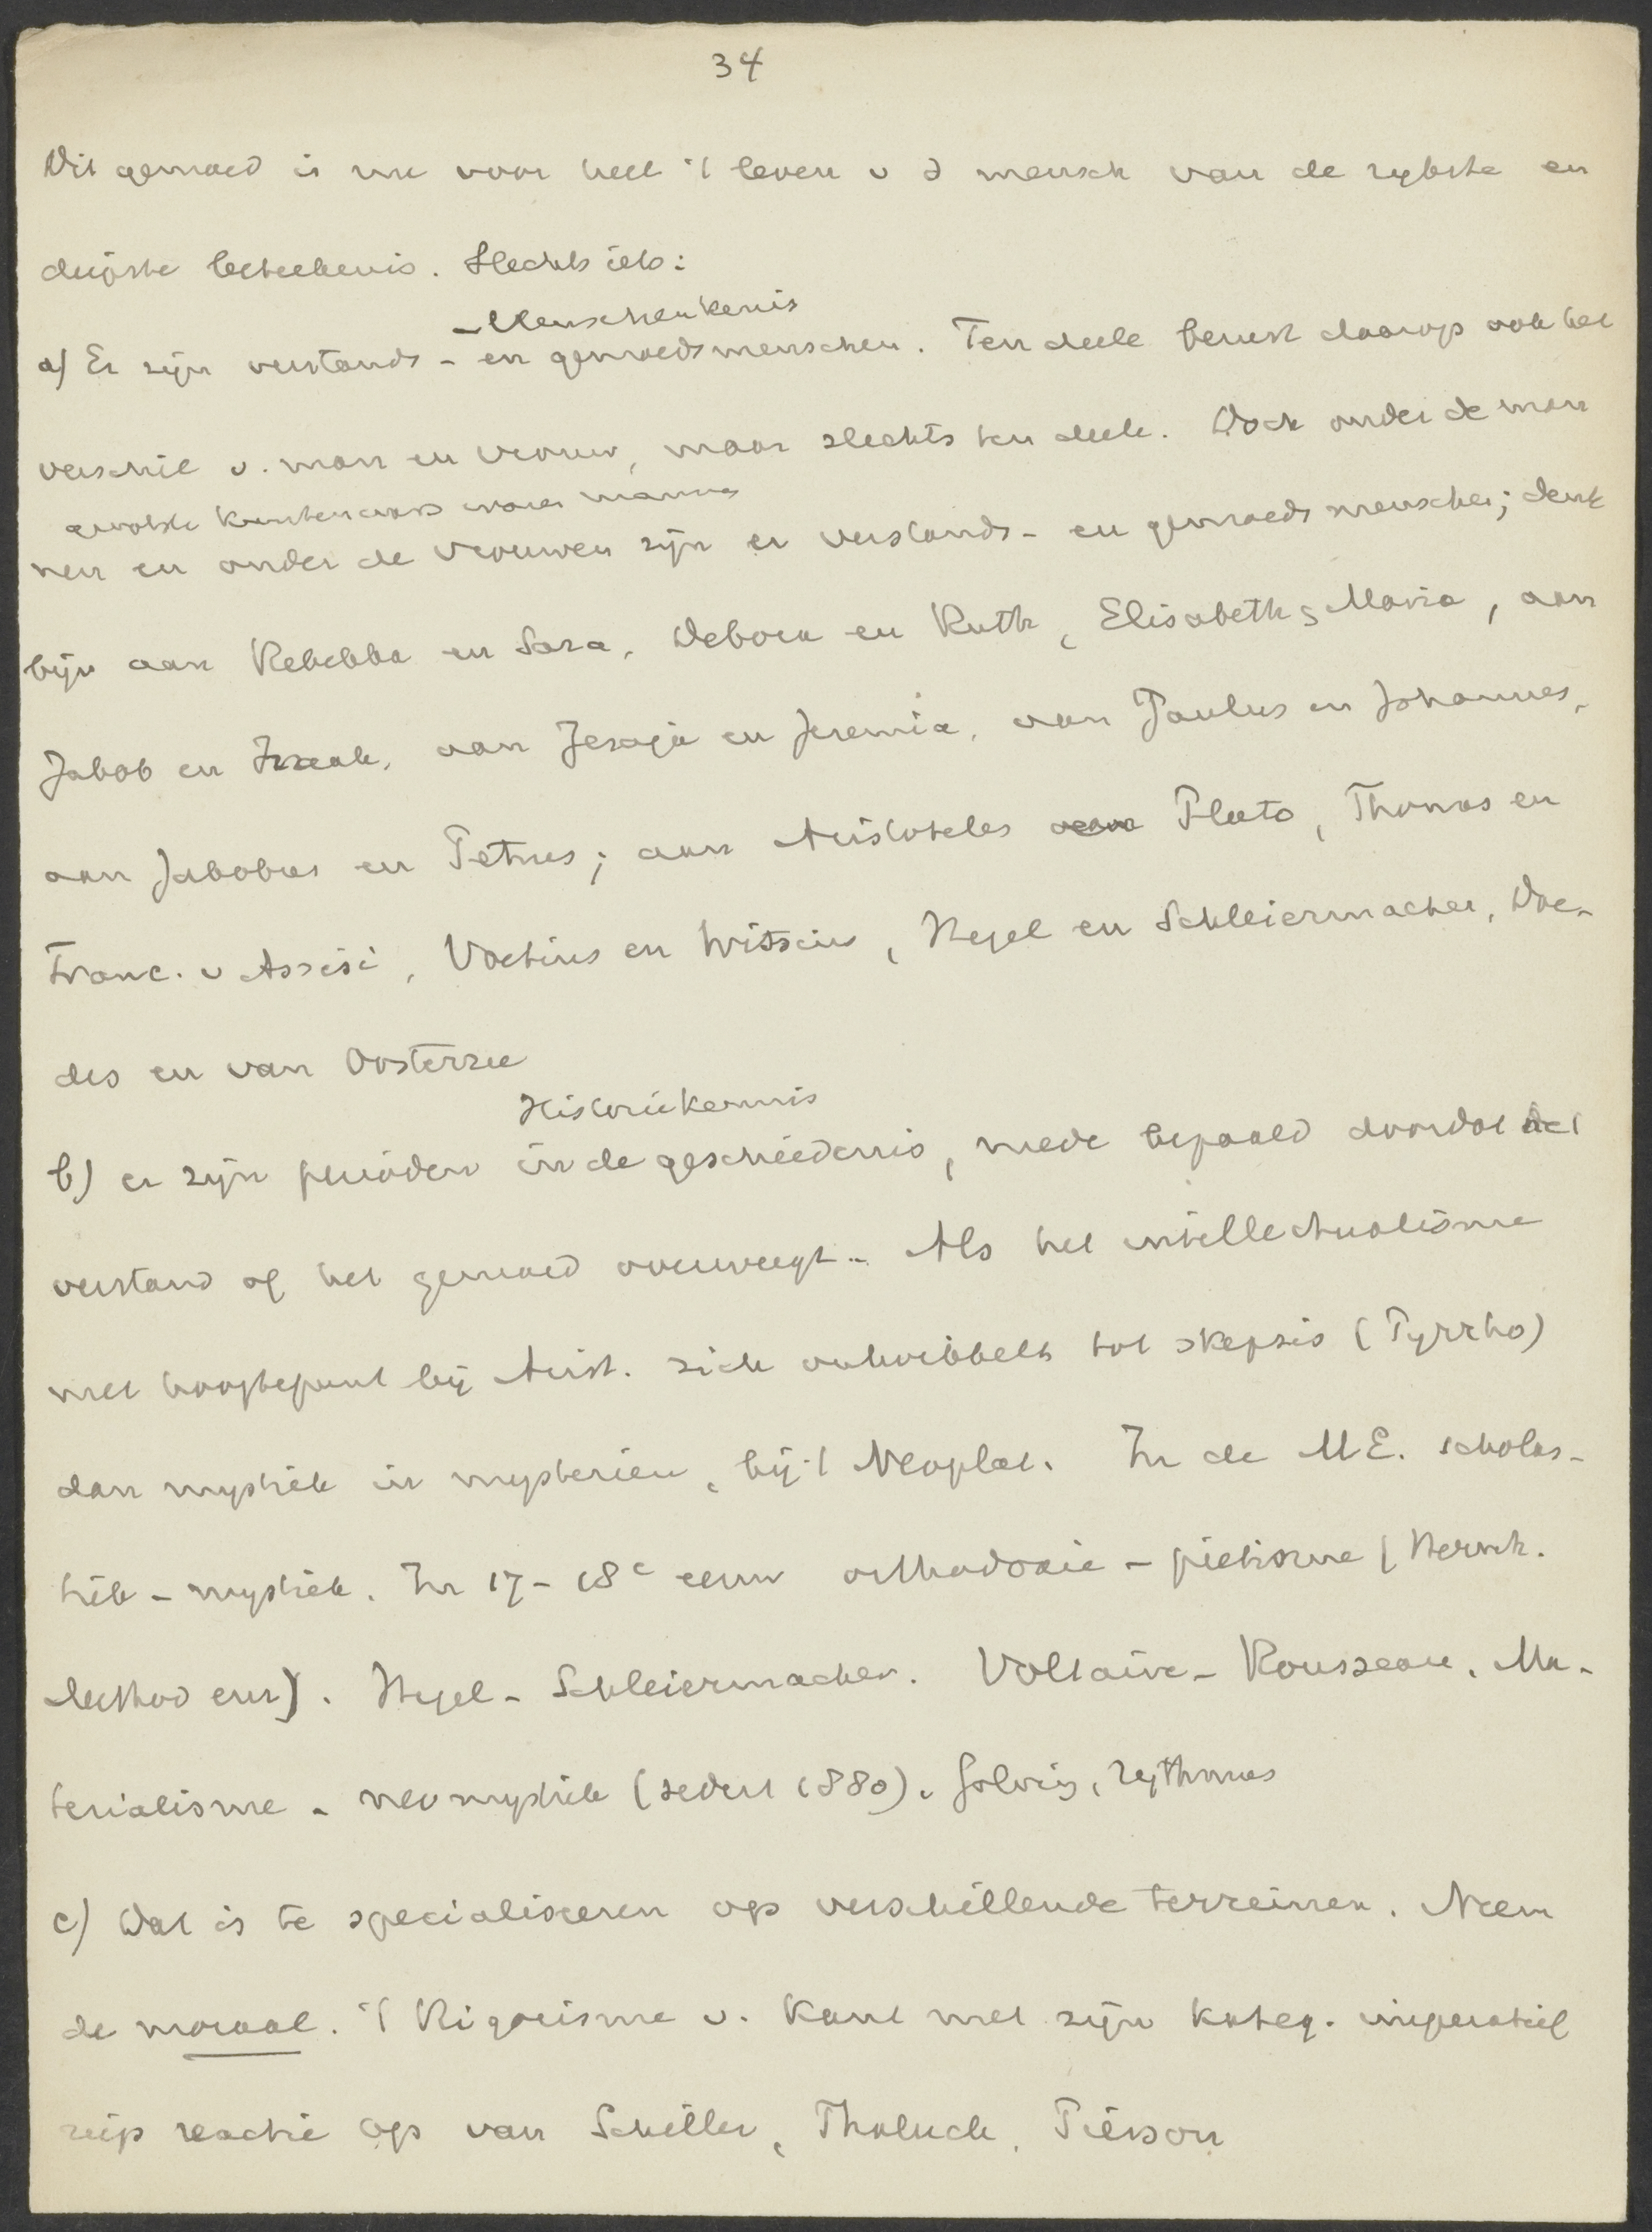 34
Dit gemoed is nu voor heel 't leven v d mensch van de rijkste en
diepste beteekenis. Slechts iets:
- Menschenkennis
a) Er zijn verstands- en gemoedsmenschen. Ten deele berust daarop ook het
verschil v. man en vrouw, maar slechts ten deele. Doch onder de man
grootste kunstenaars waren mannen
nen en onder de vrouwen zijn er verstands- en gemoedsmenschen; denk
bijv aan Rebekka en Sara, Debora en Ruth, Elisabeth & Maria, aan
Jakob en Izaak, aan Jesaja en Jeremia, aan Paulus en Johannes,
aan Jakobus en Petrus; aan Aristoteles Plato, Thomas en
Franc. v Assisi, Voetius en Witsius, Hegel en Schleiermacher, Doe-
des en van Oosterzee
Historiekennis
b) er zijn perioden in de geschiedenis, mede bepaald doordat het
verstand of het gemoed overweegt. Als het intellectualisme
met hoogtepunt bij Arist. zich ontwikkelt tot skepsis (Pyrrho)
dan mystiek in mysterien, bij 't Neoplat. In de M.E. scholas-
tiek - mystiek. In 17-18e eeuw orthodoxie - pietisme (Hernh.
Methodenz). Hegel - Schleiermacher. Voltaire - Rousseau. Ma-
terialisme - neomystiek (sedert 1880). Golving, rythmus
c) Dat is te specialiseeren op verschillende terreinen. Neem
de moraal. 't Rigorisme v. Kant met zijn kateg. imperatief
riep reactie op van Schiller, Tholuck, Pierson